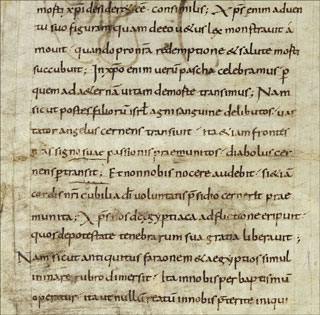 mostrˉ xpˉi desiderᵉᵗ & ee consimilis; Xpˉs enim adven
tu suo figuram quam deco u& us lex monstravit á
movit · quando pro nrˉa redemptione & salute morti
succubuit ; In xpˉo enim verum pascha celebramus pˉ
quem ad aeternā vitam de morte transimus ; Nam
sicut postes filiorum isrˉl agni sanguine delibutos · vas
tator angelus cernens transivit · ita & iam frontes
nrˉas signo suae passionis praemunitos · diabolus cer
nens pˉtransit ; Et non nobis nocere audebit · si & iā
cordis nrˉi cubilia dˉi voluntatis pˉsidio cernerit prae
munita ; Xpˉs nos de egyptiaca adflictione eripuit ·
quos de potestate tenebrarum sua gratia liberavit ;
Nam sicut antiquitus faraonem & aegyptios simul
in mare rubro dimersit · Ita in nobis per baptismū
operatur · ita ut nullū reatum in nobis pˉterite iniqui